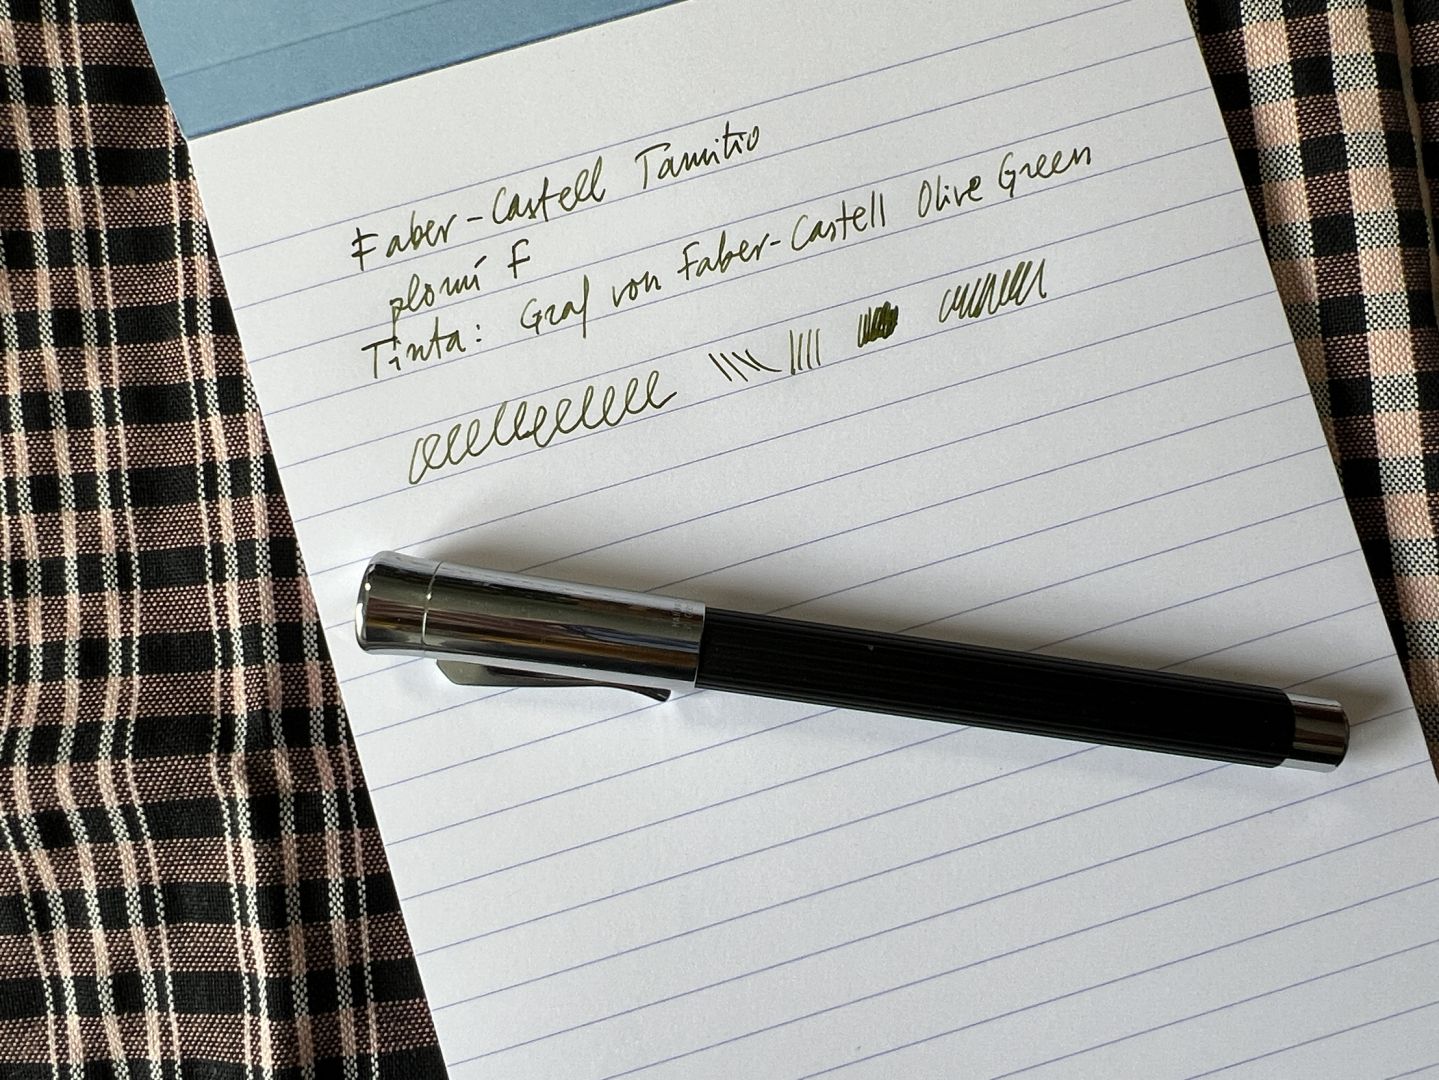 Faber-Castell Tamitio
plumí F
Tinta: Graf von Faber-Castell Olive Green